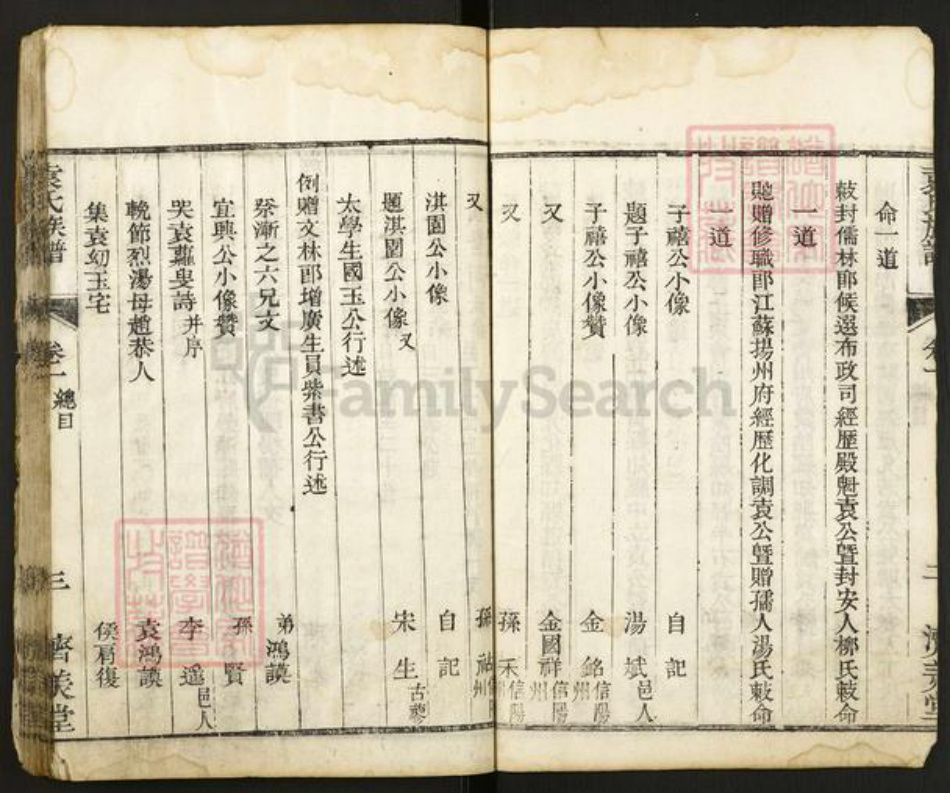 袁氏族譜
卷一
二
濟美堂
命一道
敕封儒林郎候選布政司經歷殿魁袁公暨封安人柳氏敕命
一道
貤贈修職郎江蘇揚州府經歷化調袁公暨贈孺人湯氏敕命
一道
子禧公小像 自記
題子禧公小像 湯斌 邑人
子禧公小像贊 金銘 信陽州
又 金國祥 信陽州
又 孫禾 信陽
又 孫祐 州
淇園公小像 自記
題淇園公小像 又 宋生 古蓼
太學生國玉公行述
例贈文林郎增廣生員紫書公行述
祭漸之六兄文 弟鴻謨
宜興公小像贊 孫賢
哭袁蘿叟詩 并序 李遥 邑人
輓節烈湯母趙恭人 袁鴻謨
集袁幼玉宅 侯肩復
袁氏族譜
卷一
總目
三
濟美堂
FamilySearch